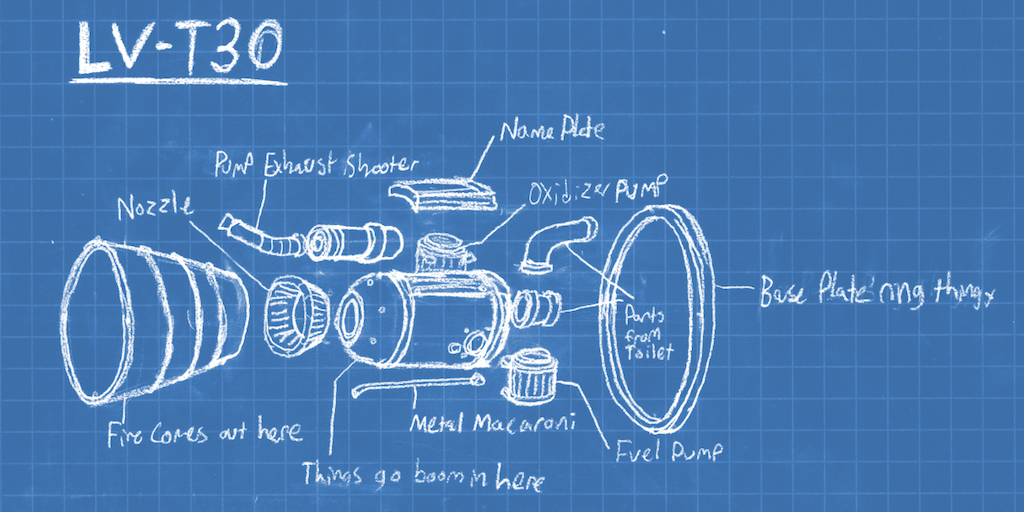 LV-T30
Name Plate
Pump Exhaust Shooter
Oxidizer Pump
Nozzle
Base Plate ring thingy
Parts
from
Toilet
Metal Macaroni
Fire Comes out here
Fuel Pump
Things go boom in here